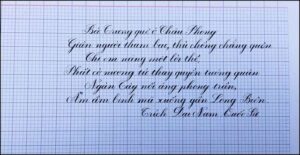 Bà Trưng quê ở Châu Phong
Giận người tham bạo, thù chồng chẳng quên
Chị em nặng một lời thề,
Phất cờ nương tử thay quyền tướng quân
Ngàn Tây nổi áng phong trần,
Ầm ầm binh mã xuống gần Long Biên.
Trích Đại Nam Quốc Sử